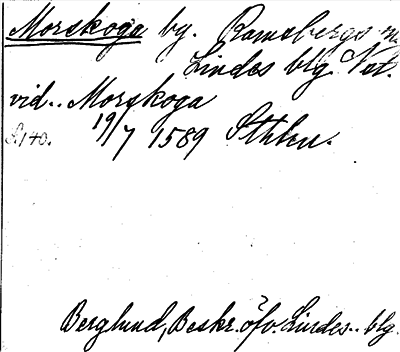 Morskoga by. Ramsbergs
Lindes blg Vstm.
vid.. Morskoga
S. 140. 19/7 1589 Sthlm.
Berglund, Beskr. öfv. Lindes.. blg.